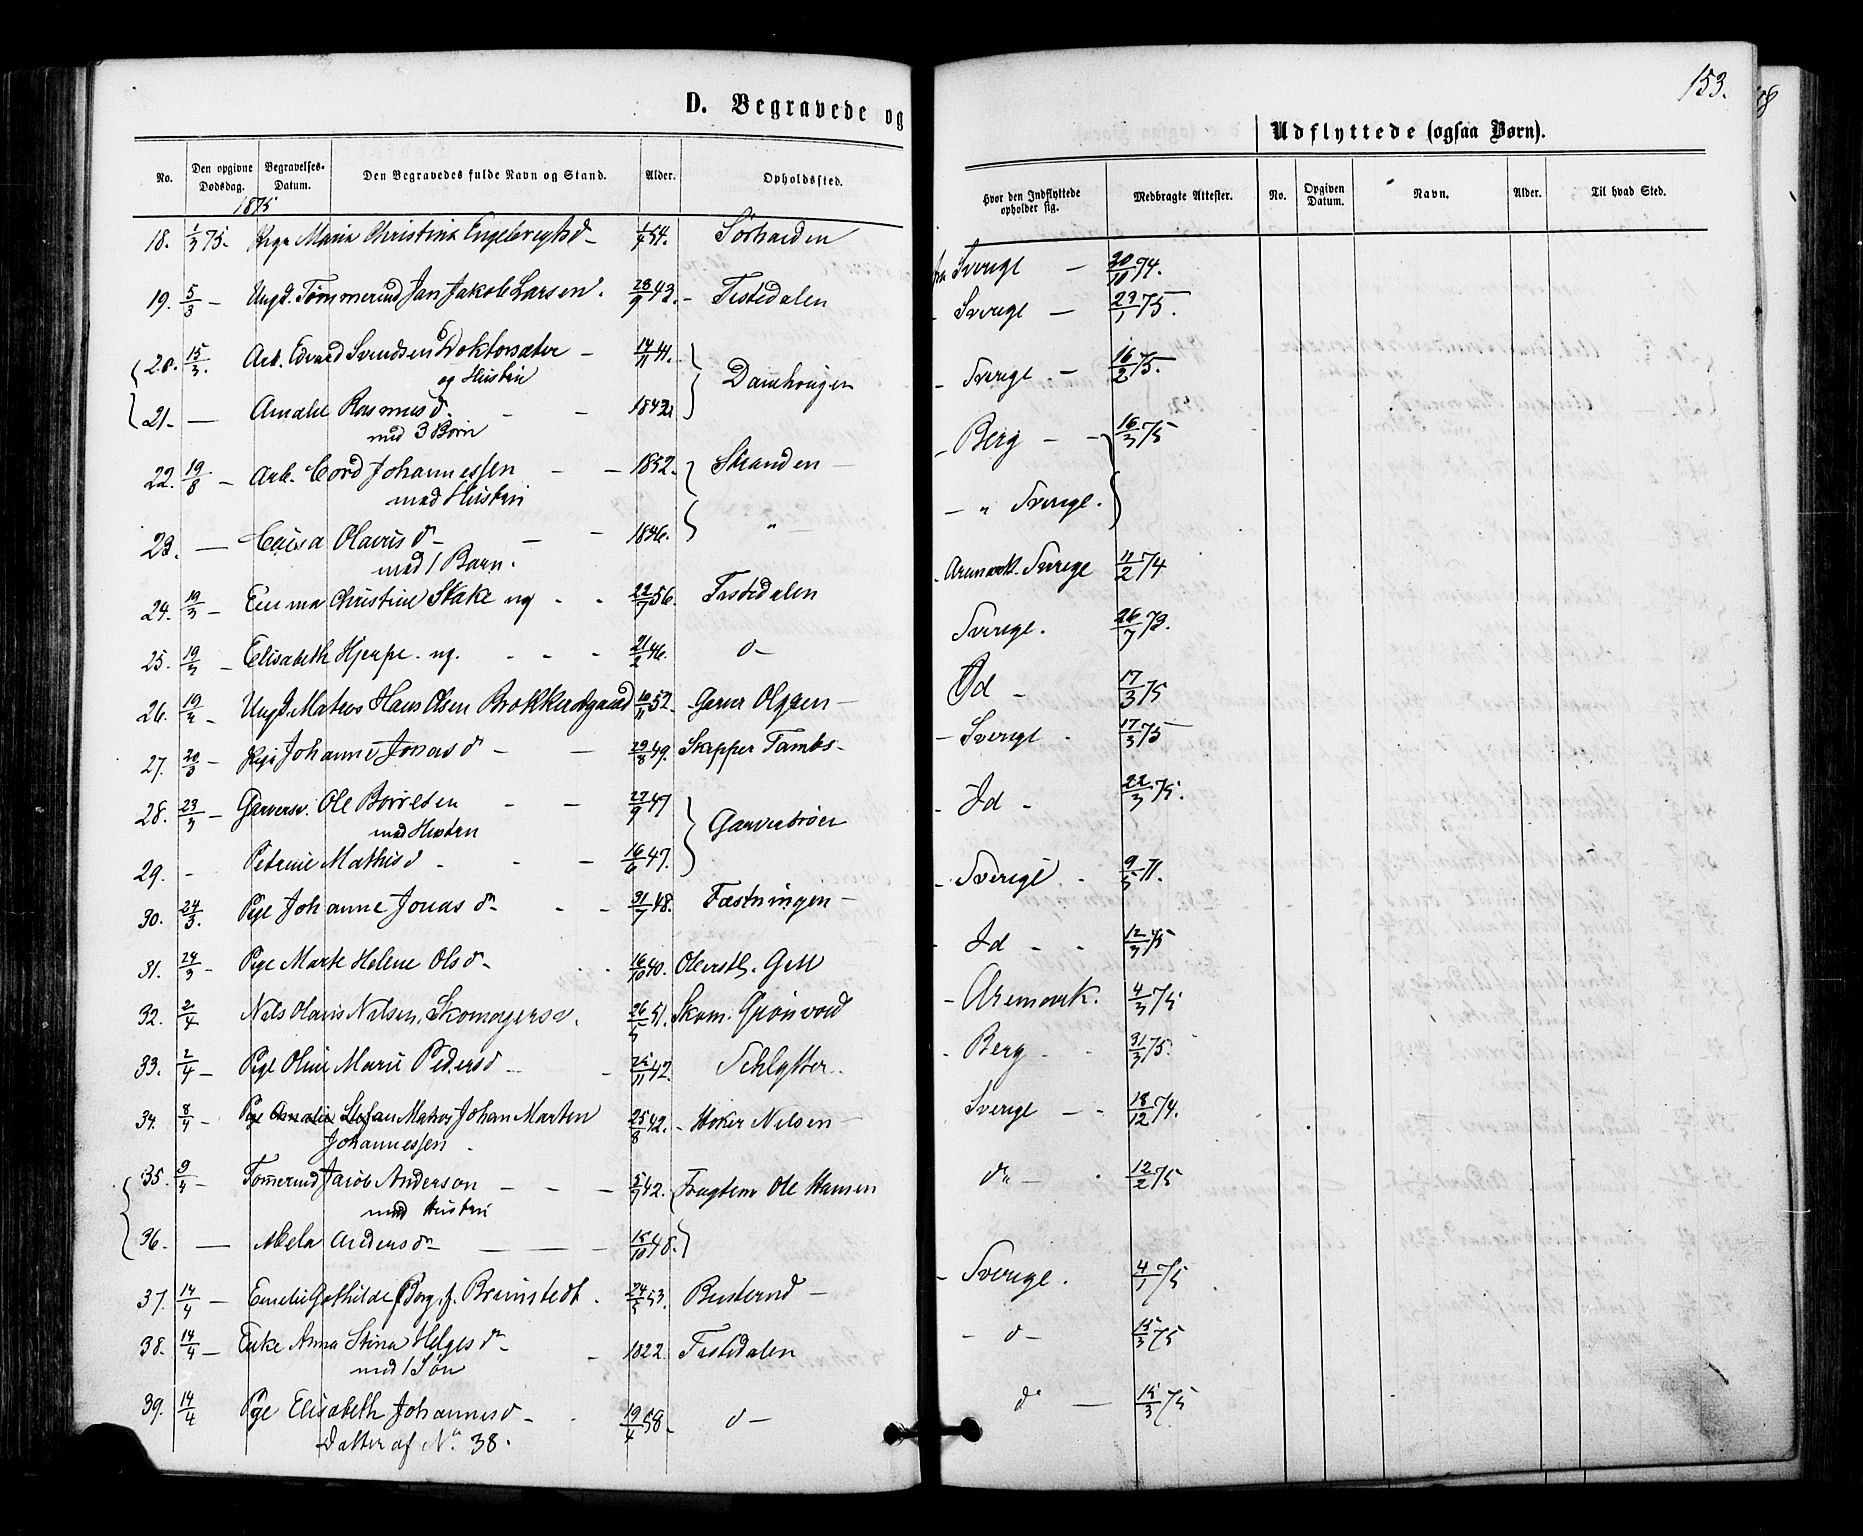 D. Begravede og
No. Den opgivne Dødsdag. Begravelses-Datum. Den Begravedes fulde Navn og Stand. Alder. Opholdssted.
1875
18. 1/3 75. Pige Maria Christina Engebregtsd 54. Sørhalden
19. 5/3 – Ungk. Tømmermd Jan Jakob Larsen. 43. – Tistedalen
20. 15/3. Arb. Edvard Svendsen – 14/11 41.
og Hustru
Damhaugen
21. — Amalie Rasmusd. – – 1842
med 3 Børn
22. 19/8 – Arb. Johannessen – – 1852. Stranden –
med Hustru
23. — Cajsa Olausd – – 1846. "
med 1 Barn.
24. 19/3 – Emma Christine Stake ug – – 22/7 56. Tistedalen
25. 19/3 – Elisabeth Hjerpe ug. – – – 21/2 46. d –
26. 19/3 – Ungk. Matros Hans Olsen 10/11 52. – Garver Olssen –
27. 20/3 – Pige Johanne Jonasd – – 29/8 49. Skipper Tambs –
28. 23/3 – Garversv. Ole Børresen – – 27/9 47
med Hustru
Garverbrøer
29. – Petrine Mathisd – – – 16/6 47.
30. 24/3. Pige Johanne Jonasd – – 31/7 48. Fæstningen –
31. 24/3 – Pige Marte Helene Olsd – 16/10 40. Oberstl. Gell
32. 2/4 Nils Olaus Nilsen, Skomagersv. 26/5 51. Skom. Grønvold
33. 2/4 – Pige Oline Marie Pedersd – – 42. Schlytter.
34. 8/4 – Pige Amalie Stefan Matros Johan Marten 25/8 42. – Høker Nilsen –
Johannessen
35. 9/4 – Tømmermd Jacob Anderson – – – 5/7 42. Fragtem Ole Hansen
med Hustru
36. — Anders dr — — 15/10 48.
37. 14/4 — Emelie Gothilde Borg, f. Brunstedt. 53. Busterud –
38. 14/4 – Enke Anna Stina Helges dr – – 1822. Tistedalen
med 1 Søn
39. 14/4 Pige Elisabeth Johannesd – 19/4 58. d –
Datter af No. 38.
153.
Udflyttede (ogsaa Børn).
Hvor den Indflyttede opholder sig. Medbragte Attester. No. Opgiven Datum. Navn. Alder. Til hvad Sted.
fra Sverige – 20/10 74.
– Sverige – 23/1 75.
– Sverige – 16/2 75.
– Berg – – 16/3 75
– " Sverige.
– Aremark – Sverige 11/2 74
Sverige. 26/7 73.
Id – 17/3 75
– Sverige – 17/3 75
– Id – 22/3 75.
– Sverige. – 9/5 71.
– Id – – 12/3 75
– Aremark. 4/3 75
– Berg – – 31/3 75.
Sverige – – 18/12 74.
do – 12/2 75
– Sverige. 75
– d – 15/3 75
do — 15/3 75